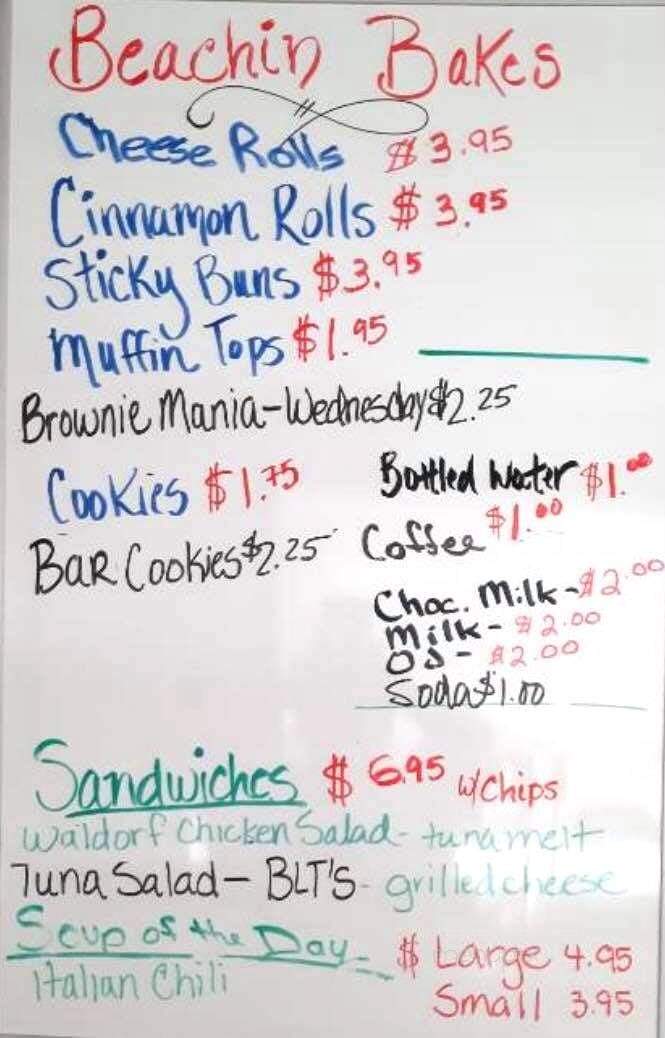 Beachin Bakes
Cheese Rolls $3.95
Cinnamon Rolls $3.95
Sticky Buns $3.95
Muffin Tops $1.95
Brownie Mania-Wednesday $2.25
Cookies $1.75
Bar Cookies $2.25
Bottled Water $1.00
Coffee $1.00
Choc. Milk - $2.00
Milk - $2.00
OJ - $2.00
Soda $1.00
Sandwiches $6.95 w/Chips
Waldorf Chicken Salad - tuna melt
Tuna Salad - BLT'S - grilled cheese
Soup of the Day - $ Large 4.95
Italian Chili
Small 3.95